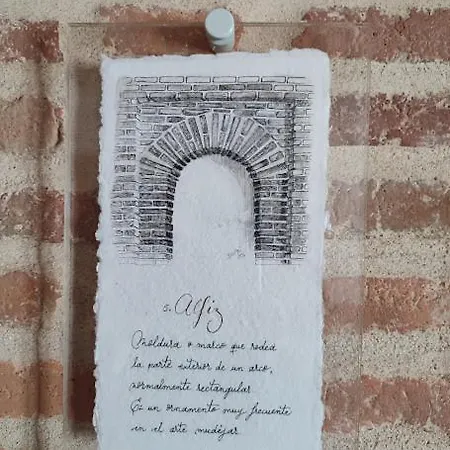 s. Alfiz
Moldura o marco que rodea
la parte exterior de un arco,
normalmente rectangular.
Es un ornamento muy frecuente
en el arte mudéjar.